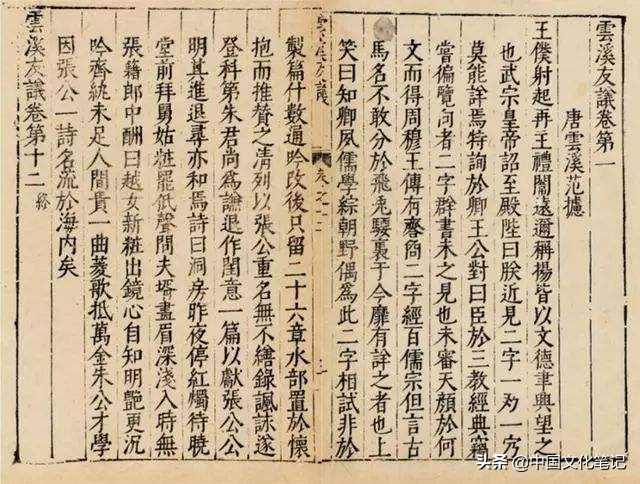 雲溪友議卷第一
唐雲溪范攄
王僕射起再王禮闈遠邇稱揚皆以文德聿興望之
也武宗皇帝詔至殿陛曰朕近見二字一
莫能詳焉特詢於卿王公對曰臣於三教經典竊
嘗徧覽向者二字群書未之見也未審天顏於何
文而得周穆王傳有二字經百儒宗但言古
馬名不敢分於飛兔騕裊于今靡有詳之者也上
笑曰知卿夙儒學綜朝野偶爲此二字相試非於
雲溪友議
製篇什數通吟改後只留二十六章水部置於懷
抱而推贊之清列以張公重名無不繕錄諷詠遂
登科第朱君尚爲謙退作閨意一篇以獻張公公
明其進退尋亦和焉詩曰洞房昨夜停紅燭待曉
堂前拜舅姑粧罷低聲問夫壻畫眉深淺入時無
張籍郎中酬曰越女新粧出鏡心自知明艶更沉
吟齊紈未足人間貴一曲菱歌抵萬金朱公才學
因張公一詩名流於海內矣
雲溪友議卷第十二 終
头条 @中国文化笔记